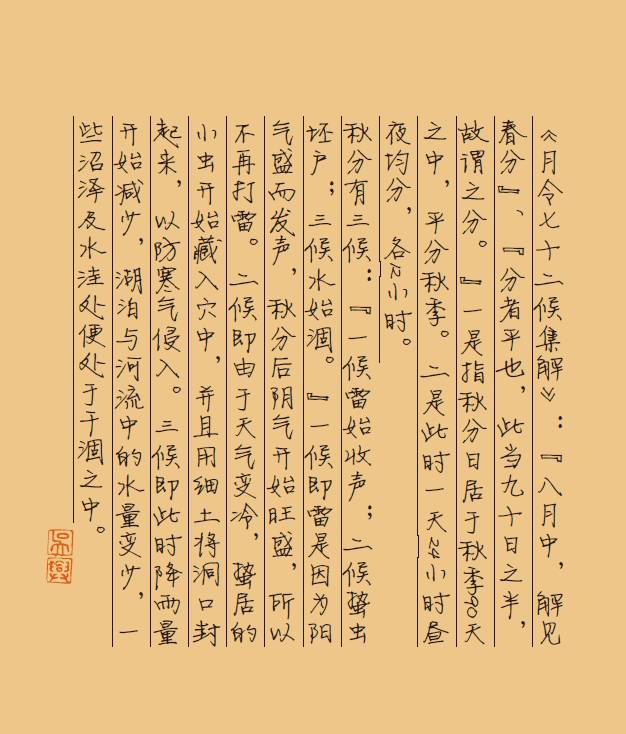 《月令七十二候集解》：『八月中，解见
春分』、『分者平也，此当九十日之半，
故谓之分。』一是指秋分日居于秋季90天
之中，平分秋季。二是此时一天24小时昼
夜均分，各12小时。
秋分有三候：『一候雷始收声；二候蛰虫
坯户；三候水始涸。』一候即雷是因为阳
气盛而发声，秋分后阴气开始旺盛，所以
不再打雷。二候即由于天气变冷，蛰居的
小虫开始藏入穴中，并且用细土将洞口封
起来，以防寒气侵入。三候即此时降雨量
开始减少，湖泊与河流中的水量变少，一
些沼泽及水洼处便处于干涸之中。